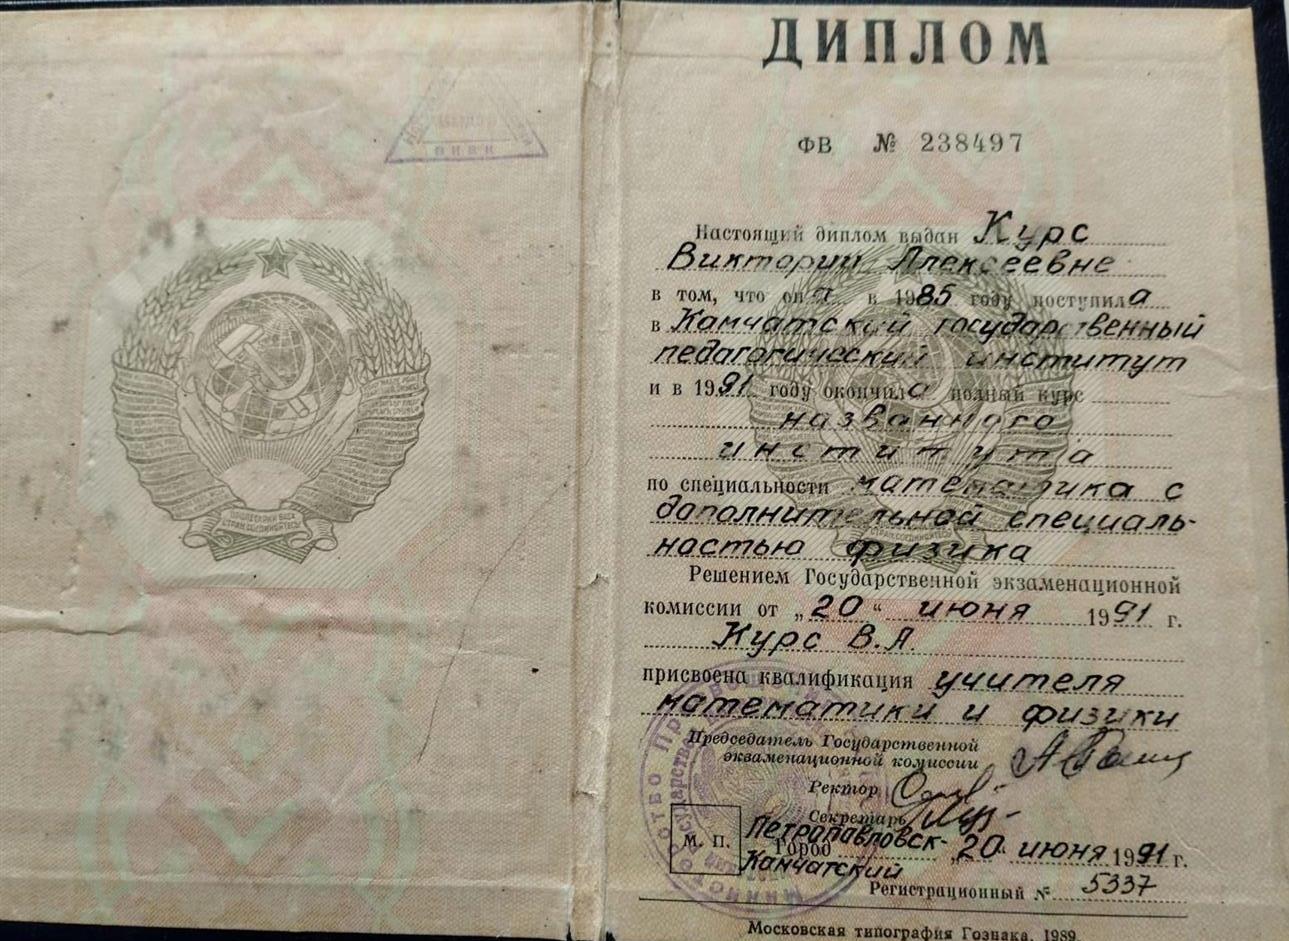 ДИПЛОМ
ФВ № 238497
Настоящий диплом выдан Курс
Виктории Алексеевне
в том, что она в 1985 году поступила
в Камчатский государственный
педагогический институт
и в 1991 году окончила полный курс
названного
института
по специальности математика с
дополнительной специаль-
ностью физика
Решением Государственной экзаменационной
комиссии от „20“ июня 1991 г.
Курс В.А.
присвоена квалификация учителя
математики и физики
Председатель Государственной
экзаменационной комиссии
Ректор
Секретарь
М. П.
Город Петропавловск-
Камчатский „20“ июня 1991 г.
Регистрационный № 5337
Московская типография Гознака. 1989.
ПРОЛЕТАРИИ ВСЕХ
СТРАН, СОЕДИНЯЙТЕСЬ!